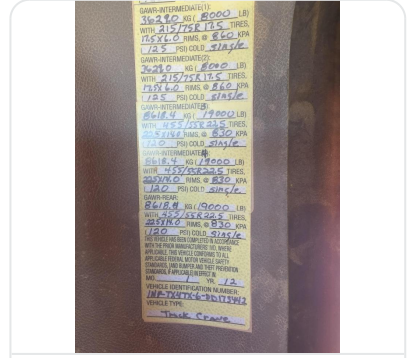 GAWR-INTERMEDIATE(1):
36280 KG ( 8000 LB)
WITH 215/75R 17.5 TIRES,
17.5X6.0 RIMS, @ 860 KPA
( 125 PSI) COLD single
GAWR-INTERMEDIATE(2):
36280 KG ( 8000 LB)
WITH 215/75R17.5 TIRES,
17.5X6.0 RIMS, @ 860 KPA
( 125 PSI) COLD single
GAWR-INTERMEDIATE
8618.4 KG ( 19000 LB)
WITH 455/55R22.5 TIRES,
22.5X14.0 RIMS, @ 830 KPA
(120 PSI) COLD single
GAWR-INTERMEDIATE
8618.4 KG ( 19000 LB)
WITH 455/55R22.5 TIRES,
22.5X14.0 RIMS, @ 830 KPA
( 120 PSI) COLD single
GAWR-REAR:
8618.4 KG ( 19000 LB)
WITH 455/55R22.5 TIRES,
22.5X14.0 RIMS, @ 830 KPA
(120 PSI) COLD single
THIS VEHICLE HAS BEEN COMPLETED IN ACCORDANCE
WITH THE PRIOR MANUFACTURERS' IVD, WHERE
APPLICABLE. THIS VEHICLE CONFORMS TO ALL
APPLICABLE FEDERAL MOTOR VEHICLE SAFETY
STANDARDS, [AND BUMPER AND THEFT PREVENTION
STANDARDS, IF APPLICABLE] IN EFFECT IN
MO. YR. 12
VEHICLE IDENTIFICATION NUMBER:
1NP-TX4TX-6-DD173442
VEHICLE TYPE:
Truck Crane